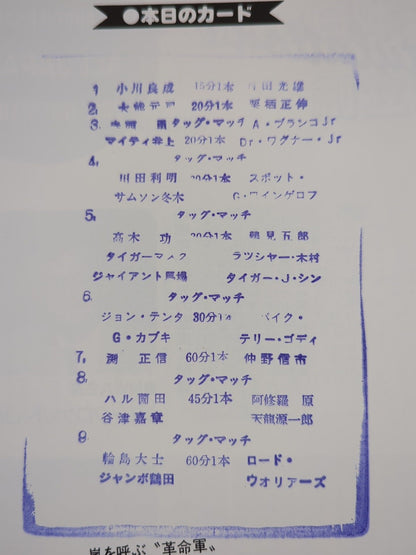 ●本日のカード
1. 小川良成 15分1本 百田光雄
2. 大熊元司 20分1本 栗栖正伸
3. タッグ・マッチ A・ブランコJr
マイティ井上 20分1本 Dr・ワグナー・Jr
4. タッグ・マッチ
川田利明 20分1本 スポット・
サムソン冬木 G・ワインゲロフ
5. タッグ・マッチ
高木 功 30分1本 鶴見五郎
タイガーマスク ラッシャー・木村
ジャイアント馬場 タイガー・J・シン
6 タッグ・マッチ
ジョン・テンタ 30分1本 バイク・
G・カブキ テリー・ゴディ
7. 渕 正信 60分1本 仲野信市
8. タッグ・マッチ
ハル薗田 45分1本 阿修羅 原
谷津嘉章 天龍源一郎
9 タッグ・マッチ
輪島大士 60分1本 ロード・
ジャンボ鶴田 ウオリアーズ
嵐を呼ぶ〝革命軍〟